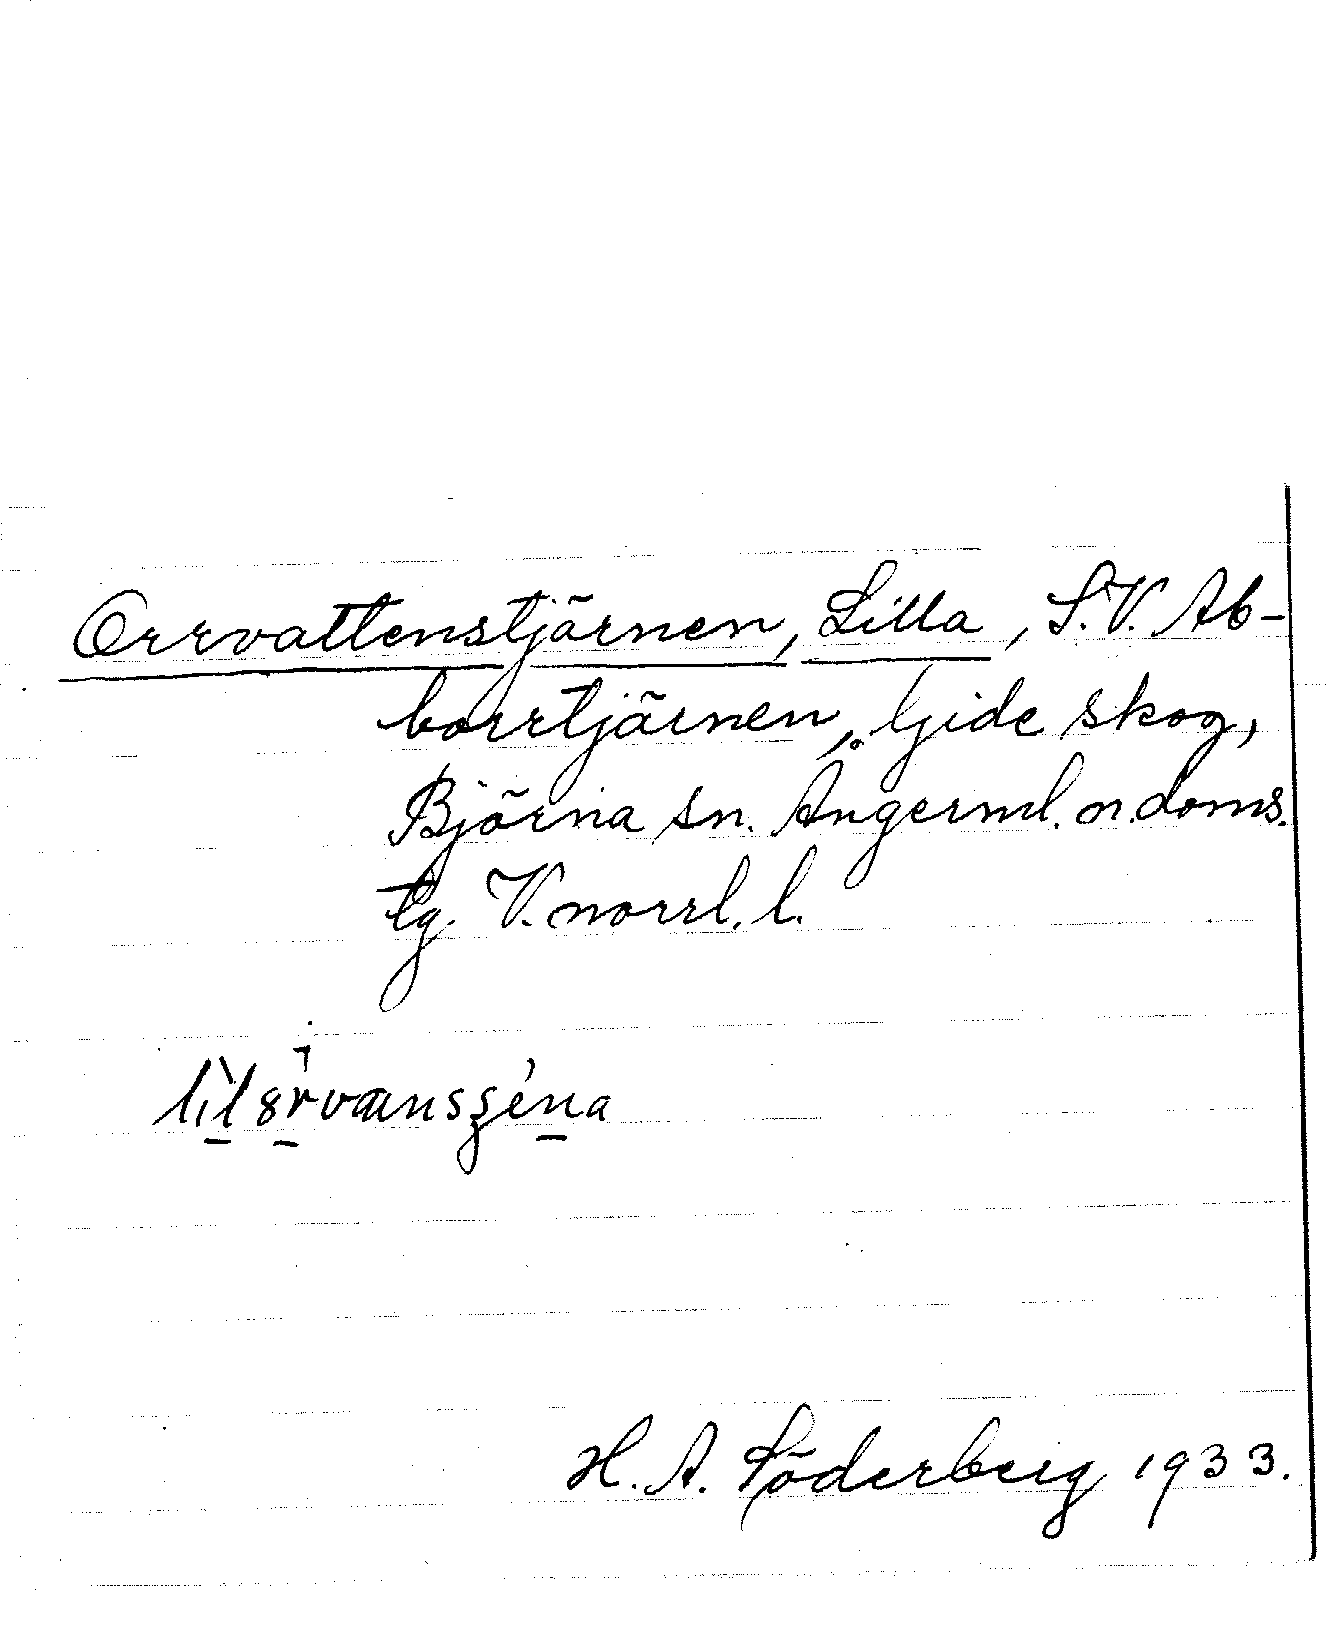 Orrvattenstjärnen, Lilla, S.V. Ab-
borrtjärnen, Gide skog,
Björna sn. Ångerml. n. doms.
tg. V. norrl. l.
H. A. Söderberg 1933.